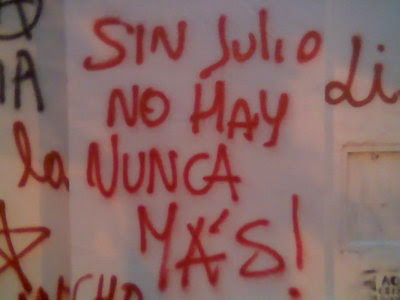 SIN JULIO
NO HAY
NUNCA
MÁS!
la
Li